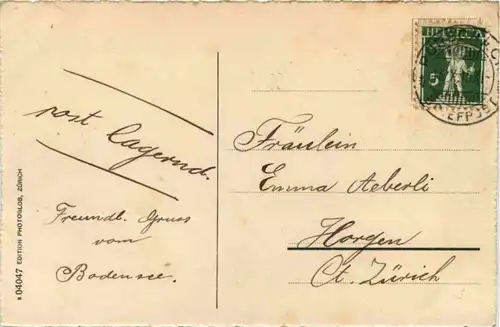 HELVETIA
5
post lagernd.
Freundl. Gruss
vom
Bodensee.
Fräulein
Emma Aeberli
Horgen
Ct. Zürich
04047 EDITION PHOTOGLOB, ZÜRICH